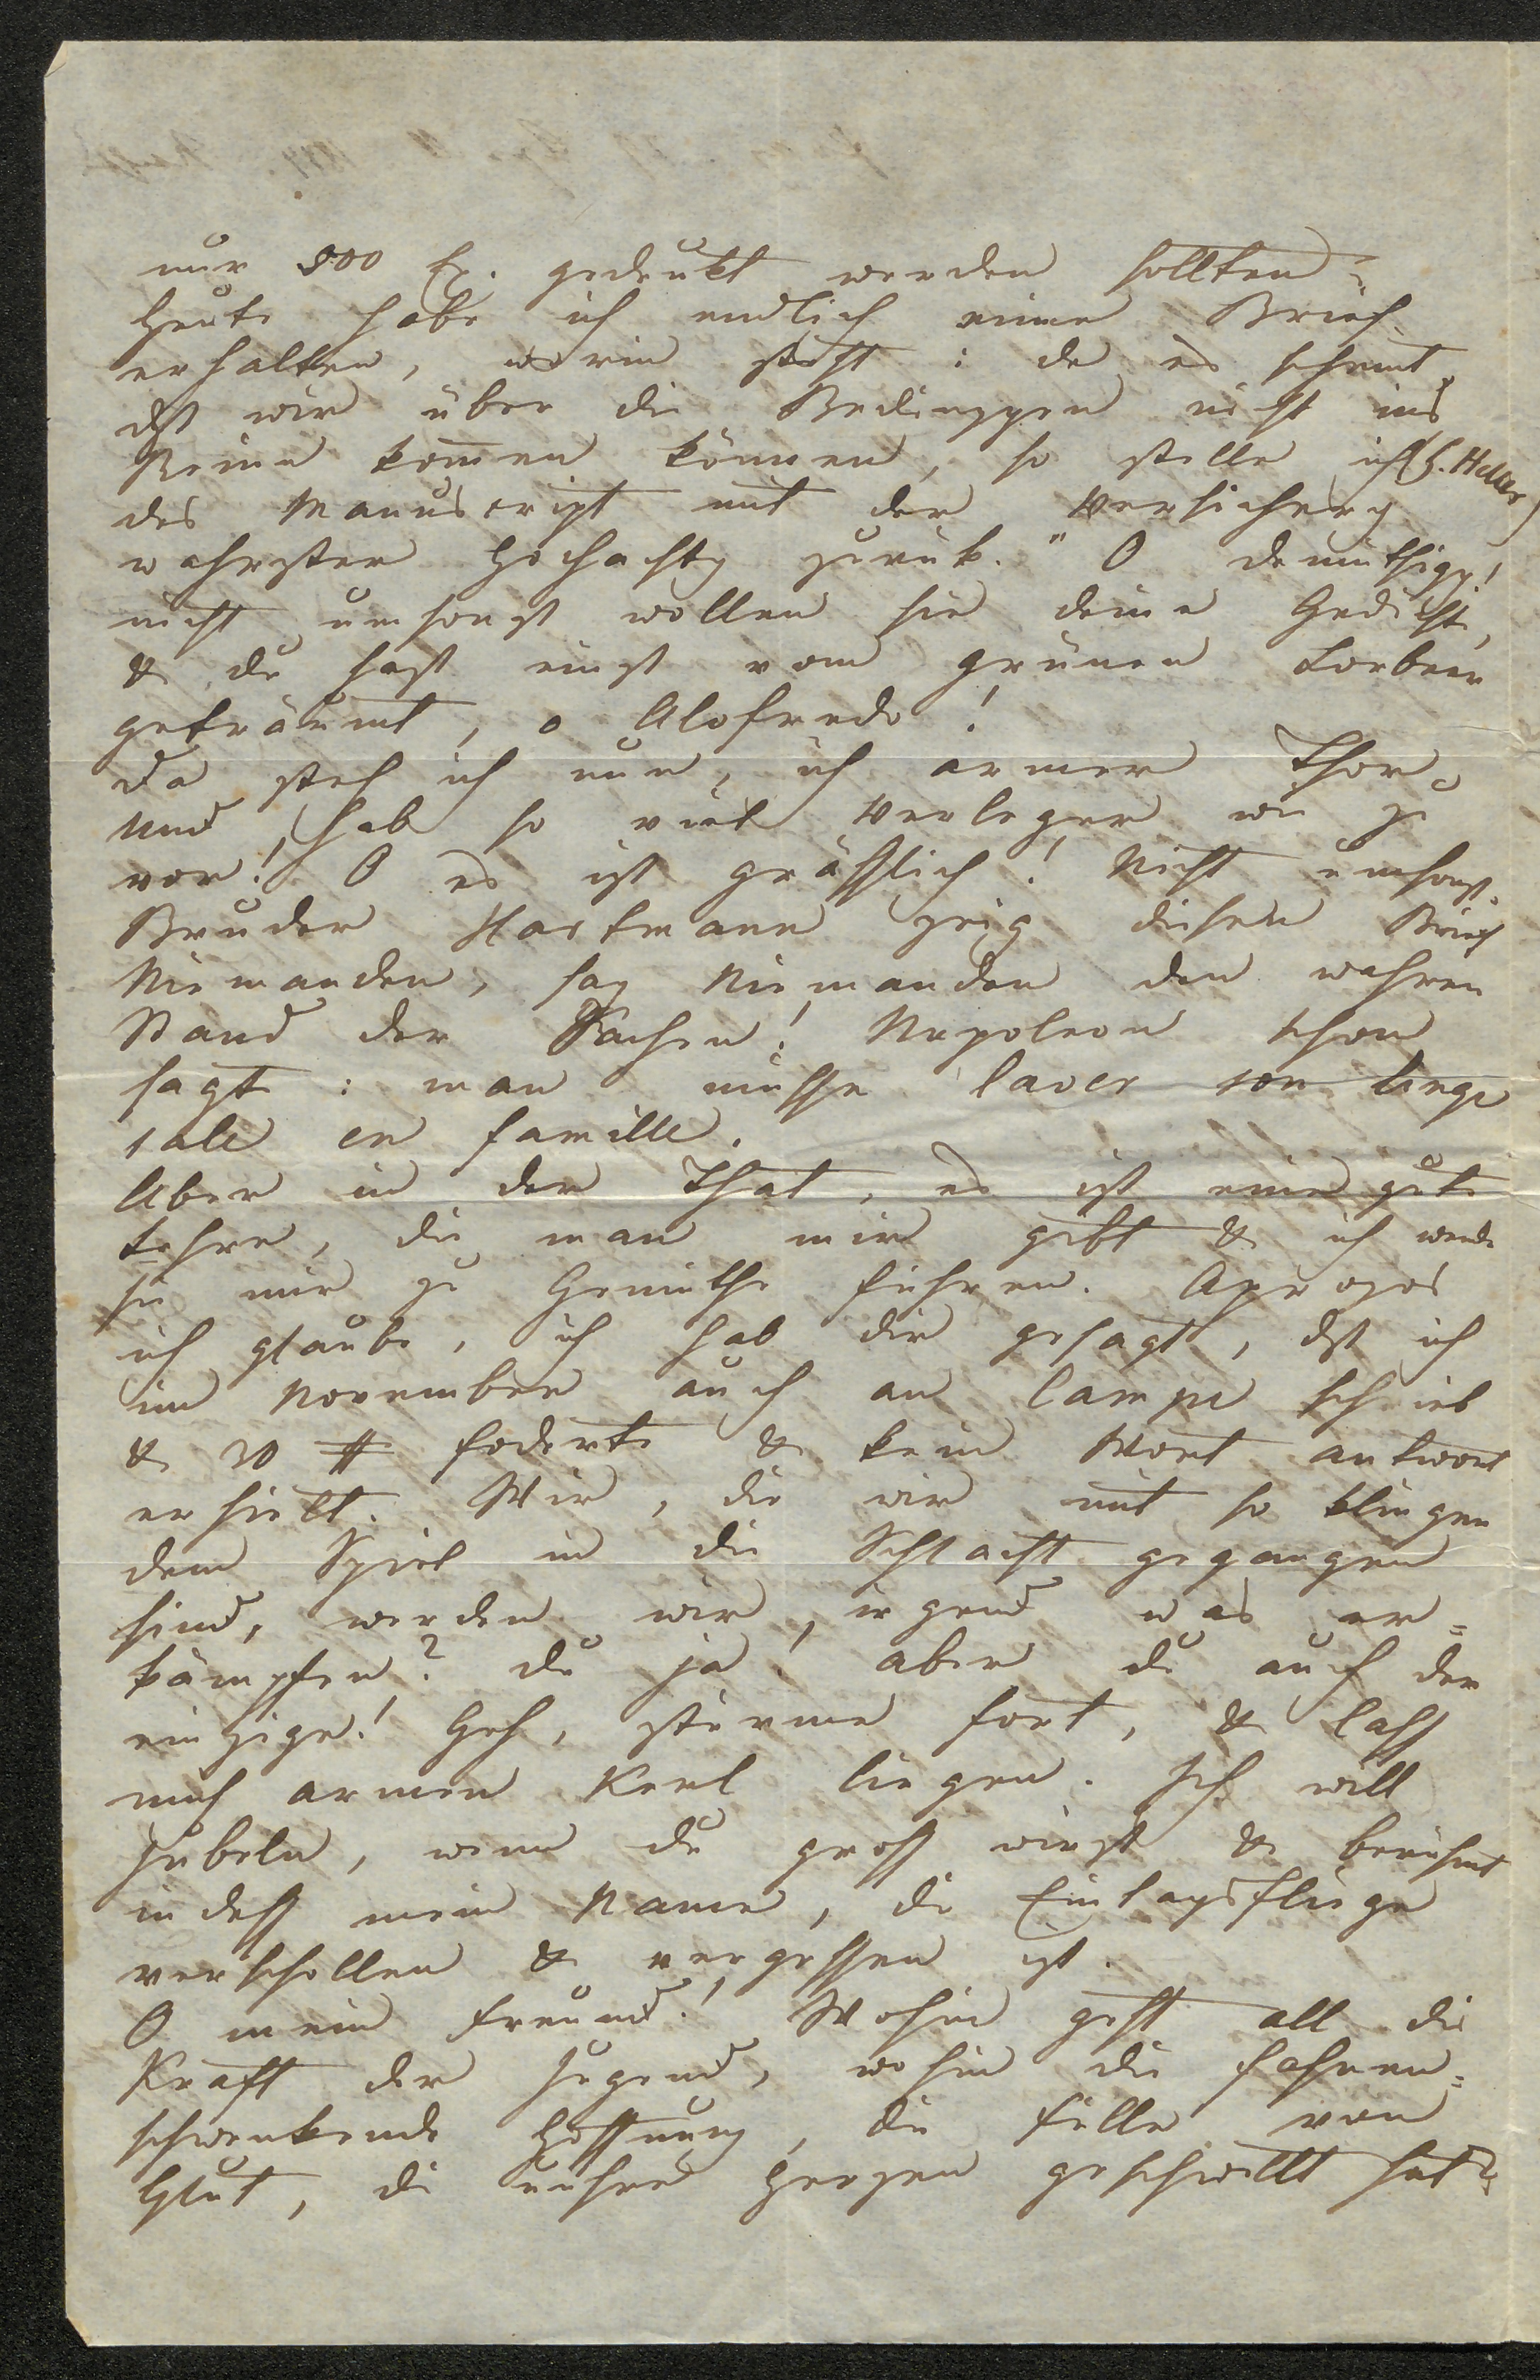 nur 500 Ex. gedrukt werden sollten.
Heute habe ich endlich einen Brief
erhalten, worin steht: da es scheint,
dß wir über die Bedinggen nicht ins
Reine kom̄en können, so stelle ich (H. Heller)
das Manuscript mit der Versicherg
wahrster Hochachtg zurük." O demüthigg!
nicht umsonst wollen sie deine Gedichte,
& du hast einst vom grünen Lorbeer
geträumt, o Alofredo!
Da steh ich nun, ich armer Thor,
Und hab so viel Verleger wie zu
vor! O es ist grässlich! Nicht umsonst.
Bruder Hartmann zeig diesen Brief
Niemanden, sag Niemanden den wahren
Stand der Sachen! Napoleon schon
sagte: man müsse laver son linge
sale en famille.
Aber in der That, es ist eine gute
Lehre, die man mir gibt & ich werde
sie mir zu Gemüthe führen. Apropos
ich glaube, ich hab dir gesagt, dß ich
im November auch an Campe schrieb
& 20 # foderte & kein Wort antwort
erhielt. Wir, die wir mit so klingen
dem Spiel in die Schlacht gegangen
sind, werden wir irgend was er=
kämpfen? du ja! aber du auch der
einzige! Geh, stürme fort, & lass
mich armen Kerl liegen. Ich will
jubeln, wenn du gross wirst & berühmt
indess mein Name, die Eintagsfliege
verschollen & vergessen ist.
O mein Freund! Wohin geht all die
Kraft der Jugend, wohin die fahnen=
schwenkende Hoffnung, die Fülle von
Glut, die unsre Herzen geschwellt hat?